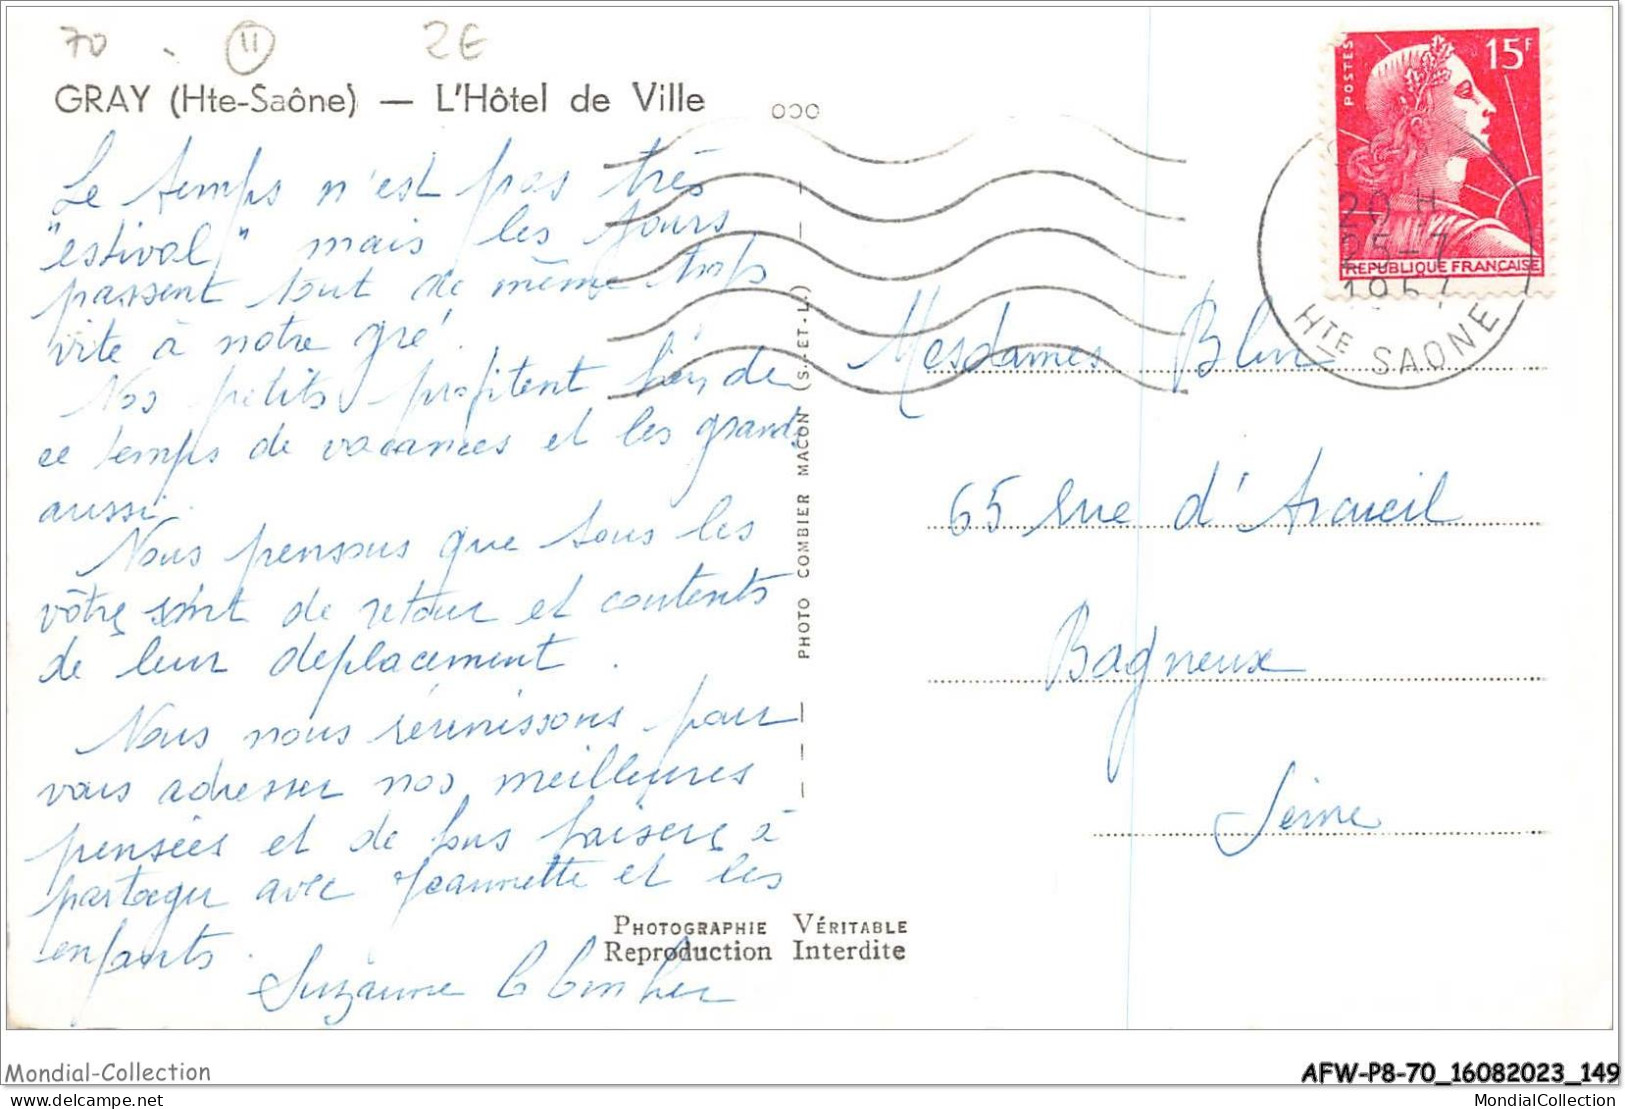 70 . 11 2€
GRAY (Hte-Saône) — L'Hôtel de Ville
Le temps n'est pas très
"estival" mais les jours
passent tout de même trop
vite à notre gré.
Nos petits profitent bien de
ce temps de vacances et les grands
aussi.
Nous pensons que tous les
vôtres sont de retour et contents
de leur déplacement.
Nous nous réunissons pour
vous adresser nos meilleures
pensées et de bons baisers à
partager avec Jeannette et les
enfants.
Suzanne
PHOTO COMBIER MACON (S.-ET-L.)
PHOTOGRAPHIE VÉRITABLE
Reproduction Interdite
POSTES
15F
RÉPUBLIQUE FRANÇAISE
20 H
25-7
1957
HTE SAONE
Mesdames Blin
65 rue d'Arcueil
Bagneux
Seine
Mondial-Collection
AFW-P8-70_16082023_149
delcampe.net
MondialCollection